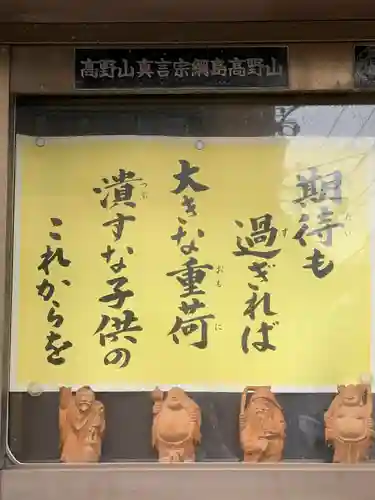 高野山真言宗綱島高野山
期待も
過ぎれば
大きな重荷
潰すな子供の
これからを